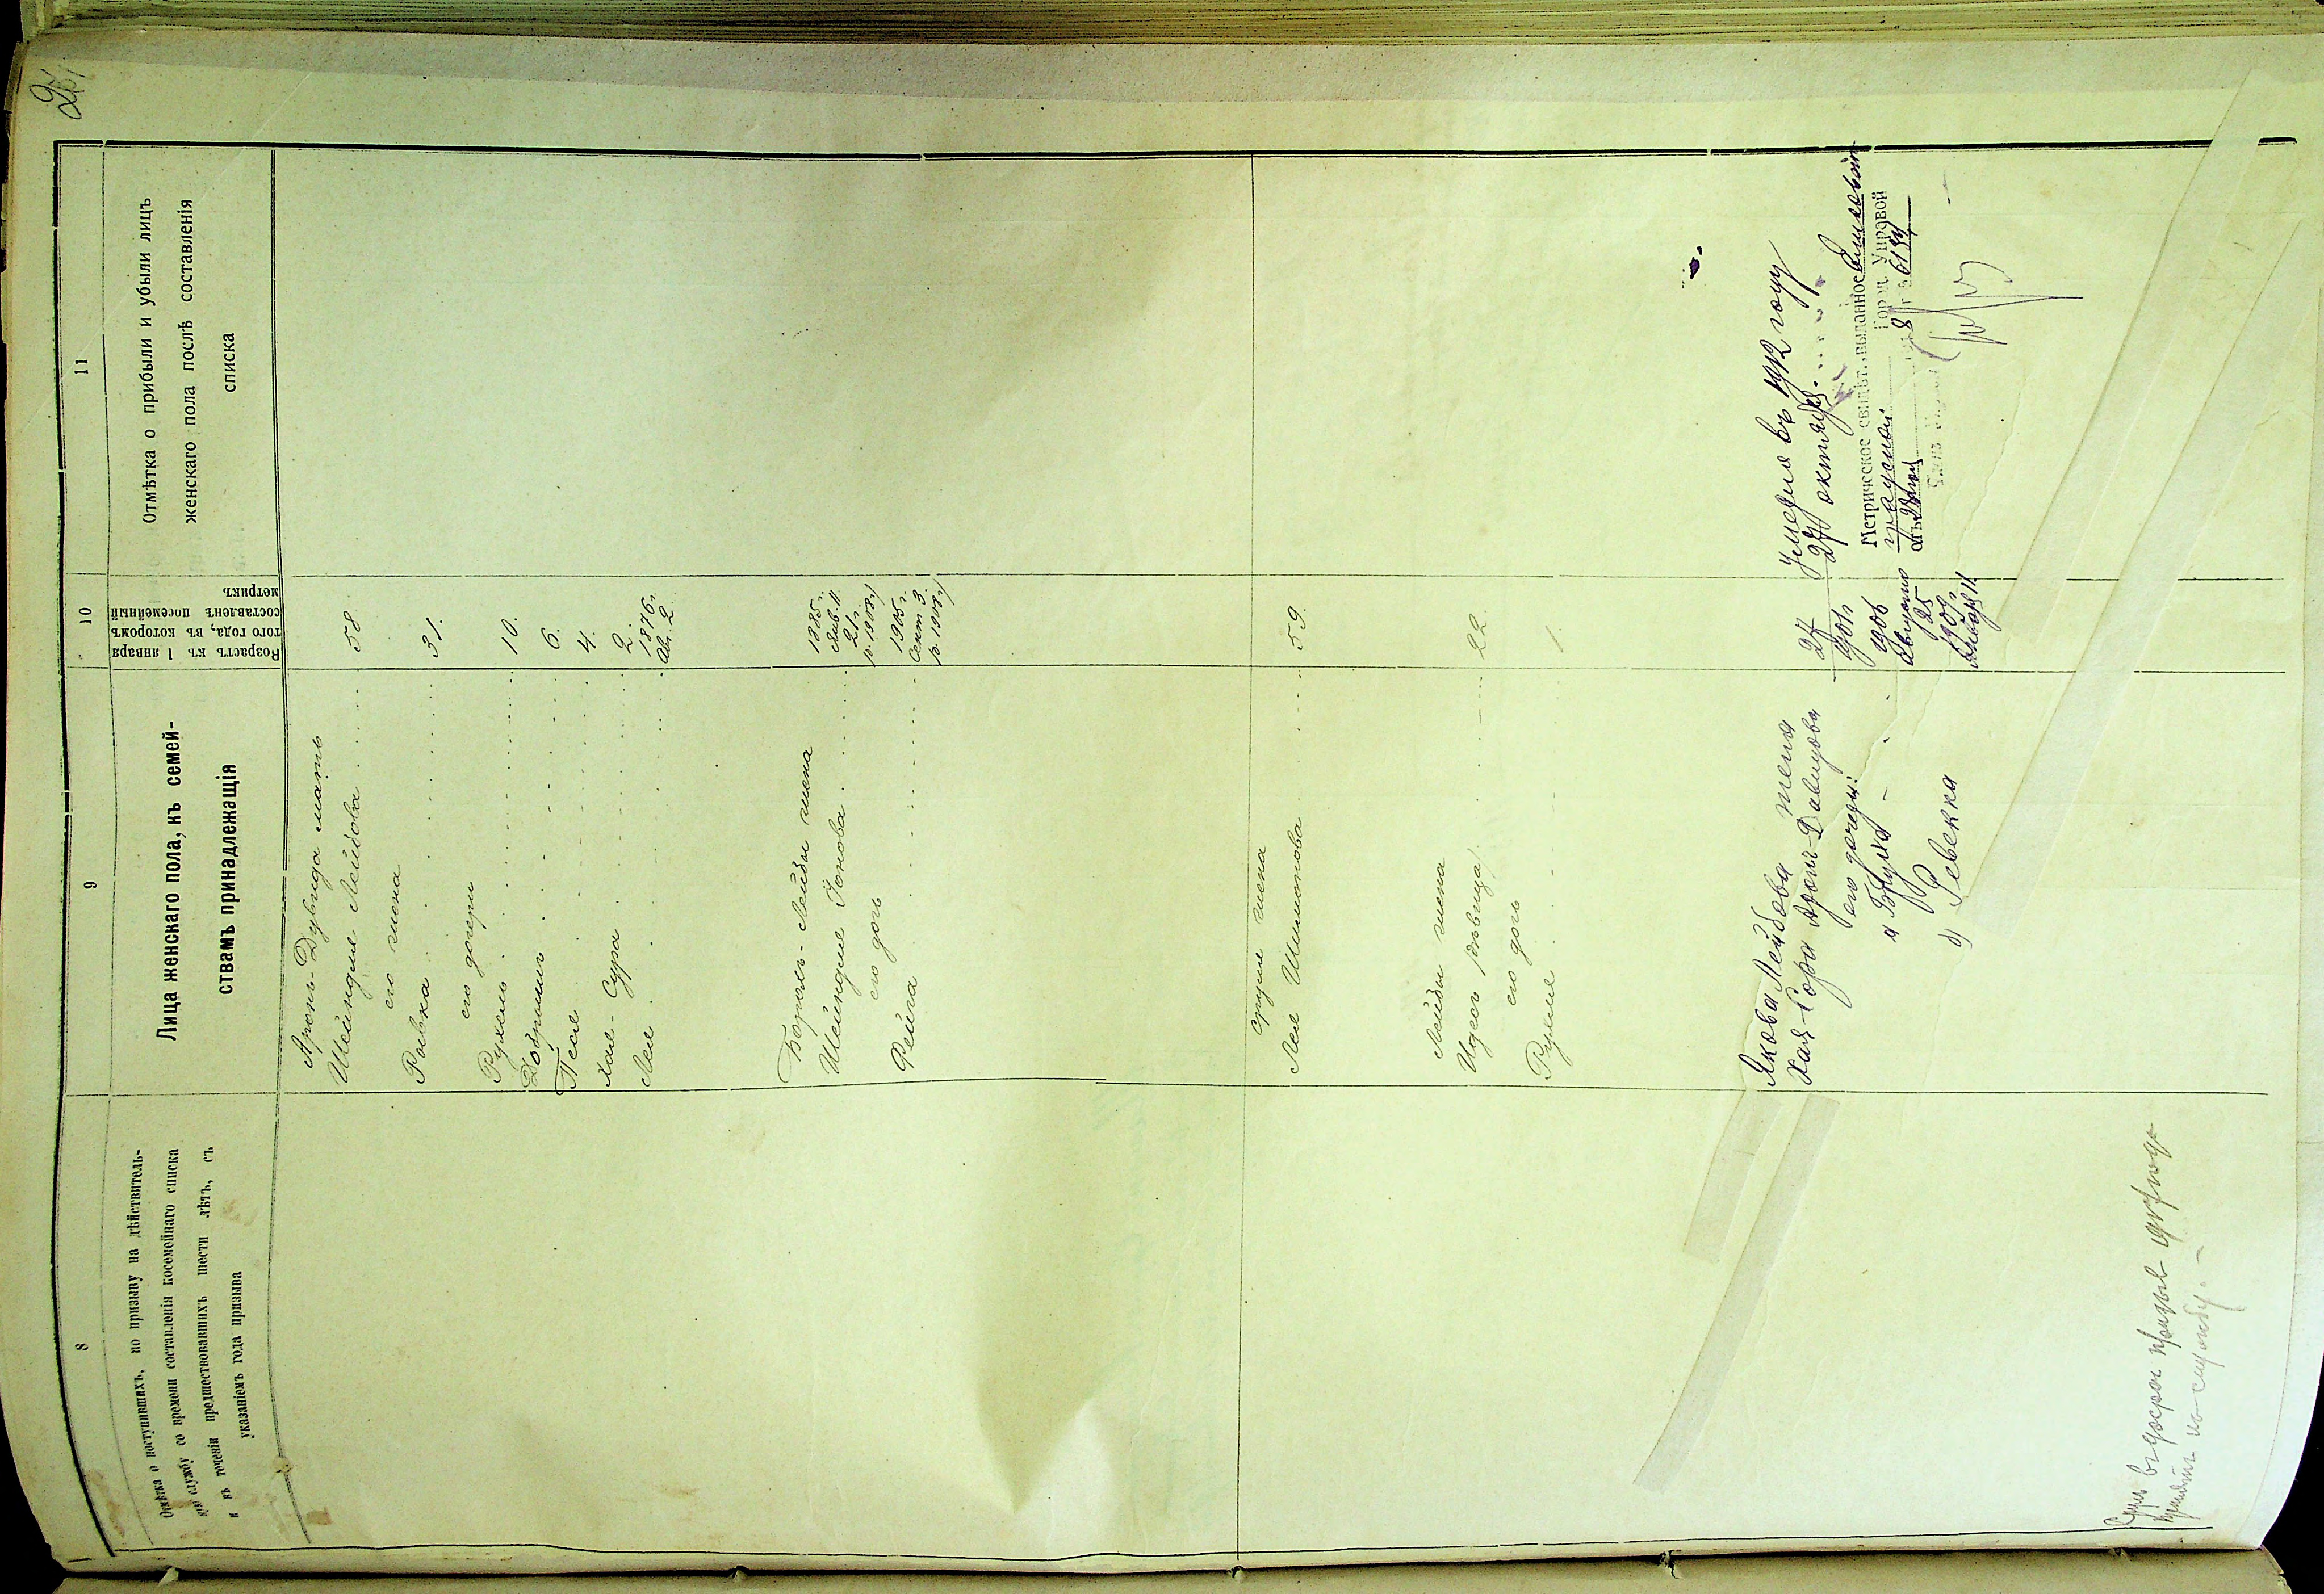 8
Отмѣтка о поступившихъ, по призыву на дѣйствитель-
ную службу со времени составленія посемейнаго списка
и въ теченіи предшествовавшихъ шести лѣтъ, съ
указаніемъ года призыва
9
Лица женскаго пола, къ семей-
ствамъ принадлежащія
10
Возрастъ къ 1 января
того года, въ которомъ
составленъ посемейный
11
Отмѣтка о прибыли и убыли лицъ
женскаго пола послѣ составленія
списка
Аронъ-Дувида мать
Шейндля Лейбова 58
его жена
Рывка 31.
его дочери
Рухель 10.
Добришъ 6.
Песя 4.
Хая-Сура 2.
Лея 1876г.
Ав. 2.
Борохъ-Лейбы жена
Шейндля Іонова 1885г.
Янв. 11
21г.
р. 1908г)
его дочь
Фейга 1905г.
Сент 3.
р. 1908г)
Сруля жена
Лея Шимонова 59.
Лейбы жена
Идесъ 22.
его дочь
Рухля 1.
Якова Лейбова жена
Хая-Сора Аронъ-Давидова 27
его дочери:
а Блума 1906
Августа
25
б) Ревекка 1909г
Января 11.
Умерла въ 1912 году
27 октября
Метрическое свидѣт. выданное
Город. Управой
6134